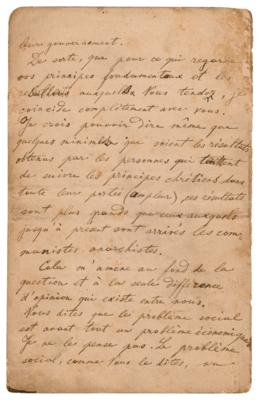 leur gouvernement.
De sorte, que pour ce qui regarde
vos principes fondamentaux et les
resultats auxquels Vous tendez, je
coincide complètement avec vous.
Je crois pouvoir dire même que
quelques minimes que soient les résultats
obtenus par les personnes qui tentent
de suivre les principes chrétiens dans
toute leur portée (ampleur), ces resultats
sont plus grands que ceux auxquels
jusqu'à présent sont arrivés les com
munistes anarchistes.
Cela m'amène au fond de la
question et à la seule différence
d'opinion qui existe entre nous.
Vous dites que le problème social
est avant tout un problème économique.
Je ne les pense pas. Le problème
social, comme Vous le dites, un